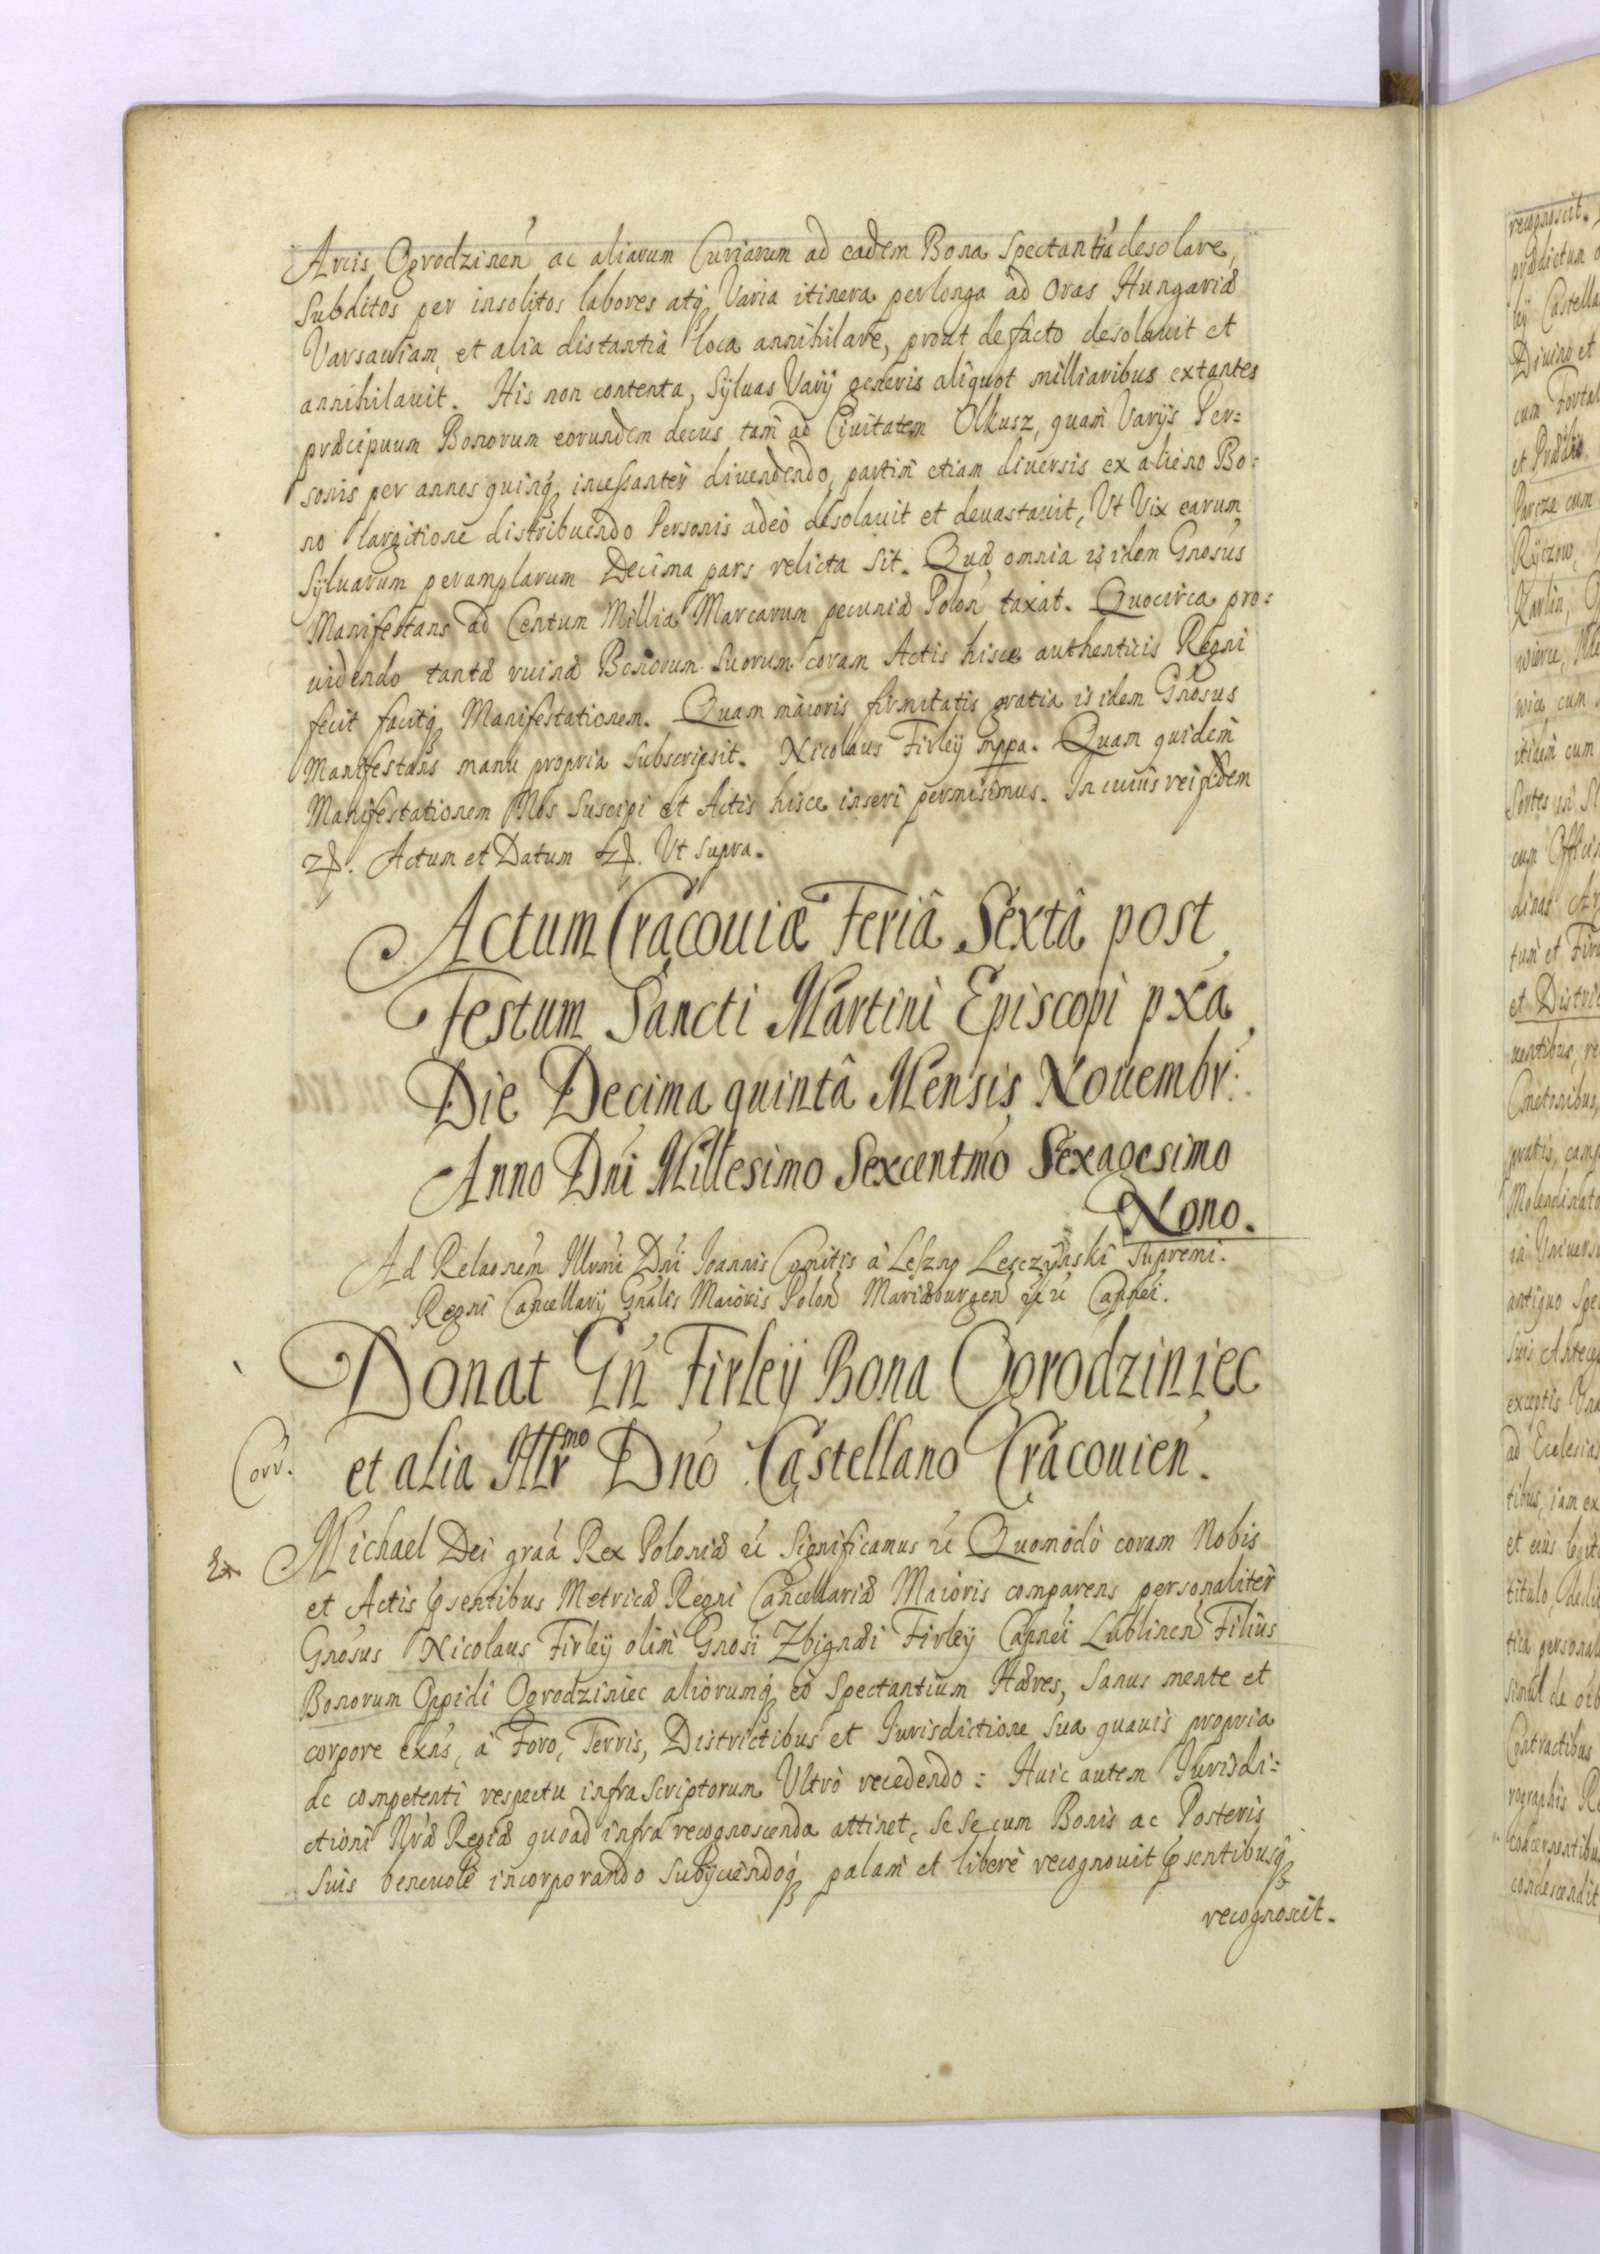 Arcis Ogrodzinen ac aliarum Curiarum ad eadem Bona Spectantia desolare,
Subditos per insolitos labores atq Varia itinera perlonga ad Oras Hungariæ
Varsauiam, et alia distantia loca annihilare, prout de facto desolauit et
annihilauit. His non contenta, Syluas Varij generis aliquot milliaribus extantes
præcipuum Bonorum eorundem decus tam ad Ciuitatem Olkusz, quam Varijs Per=
sonis per annos quinq incessanter diuendendo, partim etiam diuersis ex alieno Bo=
no largitione distribuendo Personis adeò desolauit et deuastauit, Vt Vix earum
Syluarum peramplarum Decima pars relicta sit. Quæ omnia is idem Gnosus
Manifestans ad Centum Millia Marcarum pecuniæ Polon taxat. Quocirca pro=
uidendo tantæ ruinæ Bonorum Suorum coram Actis hisce authenticis Regni
fecit facitq Manifestationem. Quam maioris firmitatis gratia is idem Gnosus
Manifestans manu propria Subscripsit. Nicolaus Firleÿ mppa. Quam quidem
Manifestationem Nos Suscipi et Actis hisce inseri permisimus. In cuius rei fidem
Actum et Datum Vt Supra.
Actum Cracouiæ Feriâ Sextâ post
Festum Sancti Martini Episcopi pxa
Die Decima quintâ Mensis Nouembr:
Anno Dni Millesimo Sexcentmo Sexagesimo
Nono.
Ad Relaonem Illmi Dni Ioannis Comitis à Leszno Lesczynski Supremi
Regni Cancellarij Gnalis Maioris Polon Mariæburgen Capnei.
Donat Gn Firleÿ Bona Ogrodziniec
et alia Illrmo Dno Castellano Cracouien.
Corr.
Michael Dei graa Rex Poloniæ Significamus Quomodò coram Nobis
et Actis psentibus Metricæ Regni Cancellariæ Maioris comparens personaliter
Gnosus Nicolaus Firleÿ olim Gnosi Zbignæi Firleÿ Capnei Lublinen Filius
Bonorum Oppidi Ogrodziniec aliorumq eò Spectantium Hæres, Sanus mente et
corpore exns, à Foro, Terris, Districtibus et Jurisdictione Sua quauis propria
ac competenti respectu infra Scriptorum Vltrò recedendo: Huic autem Jurisdi=
ctioni Nræ Regiæ quoad infra recognoscenda attinet, Se Se cum Bonis ac Posteris
Suis beneuolè incorporando Subijciendoq palam et liberè recognouit psentibusq
recognoscit.